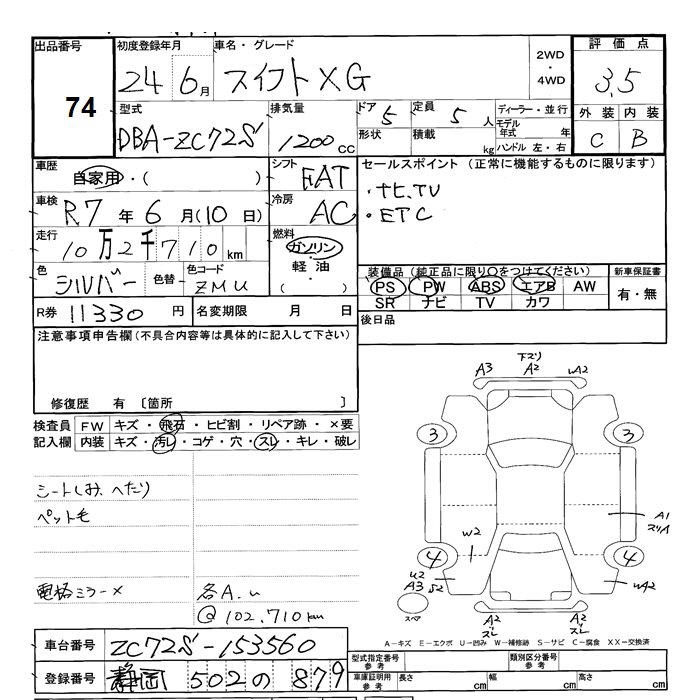 出品番号 74
初度登録年月 24 6月
車名・グレード スイフト XG
2WD・4WD
評価点 3.5
外装 C 内装 B
型式 DBA-ZC72S
排気量 1200cc
ドア 5 定員 5人
形状 積載 kg
ディーラー・並行
モデル年式 年
ハンドル 左・右
車歴 自家用・( )
シフト FAT
セールスポイント (正常に機能するものに限ります)
・ナビ、TV
・ETC
車検 R.7年6月(10日)
冷房 AC
走行 10万2千710km
燃料 ガソリン・軽油・( )
色 シルバー 色替・ 色コード ZMU
装備品 (純正品に限り○をつけてください)
PS PW ABS エアB AW
SR ナビ TV カワ
新車保証書 有・無
R券 11330円 名変期限 月 日
後日品
注意事項申告欄 (不具合内容等は具体的に記入して下さい)
修復歴 有 〔箇所 〕
検査員記入欄
FW キズ・飛石・ヒビ割・リペア跡・×要
内装 キズ・汚レ・コゲ・穴・スレ・キレ・破レ
シートしみ、へたり
ペット毛
電格ミラー×
各A.u
@102,710km
下スリ
A3 A2 wA2
3 3
A1
スリA
w2
4 4
u2
A3 S2
wA2
スペア
A2 スレ
A2 スレ
A-キズ E-エクボ U-凹み W-補修跡 S-サビ C-腐食 XX-交換済
車台番号 ZC72S-153560
登録番号 静岡 502 の 879
型式指定番号 参考
類別区分番号 参考
車庫証明用 参考 長さ cm 幅 cm 高さ cm